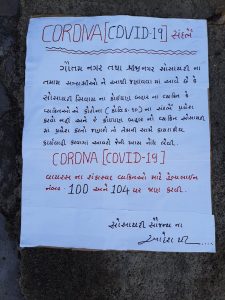 CORONA [COVID-19] સંદર્ભે
ગૌતમ નગર તથા શ્રીજીનગર સોસાયટી ના
તમામ સભ્યોને આથી જણાવવા માં આવે છે કે
સોસાયટી સિવાય ના કોઈપણ બહાર ના વ્યક્તિ કે
વ્યક્તિઓએ કોરોના (કોવિડ-૧૯) ના સંદર્ભે પ્રવેશ
કરવો નહી અને જો કોઈપણ બહાર નો વ્યક્તિ સોસાયટી
માં પ્રવેશ કરતો જણાશે તો તેમની સામે કાયદાકીય
કાર્યવાહી કરવામાં આવશે જેની ખાસ નોંધ લેવી.
CORONA [COVID-19]
વાયરસ ના શંકાસ્પદ વ્યક્તિઓ માટે હેલ્પલાઈન
નંબર - 100 અને 104 પર જાણ કરવી.
સોસાયટી સૌજન્ય ના
આદેશ થી